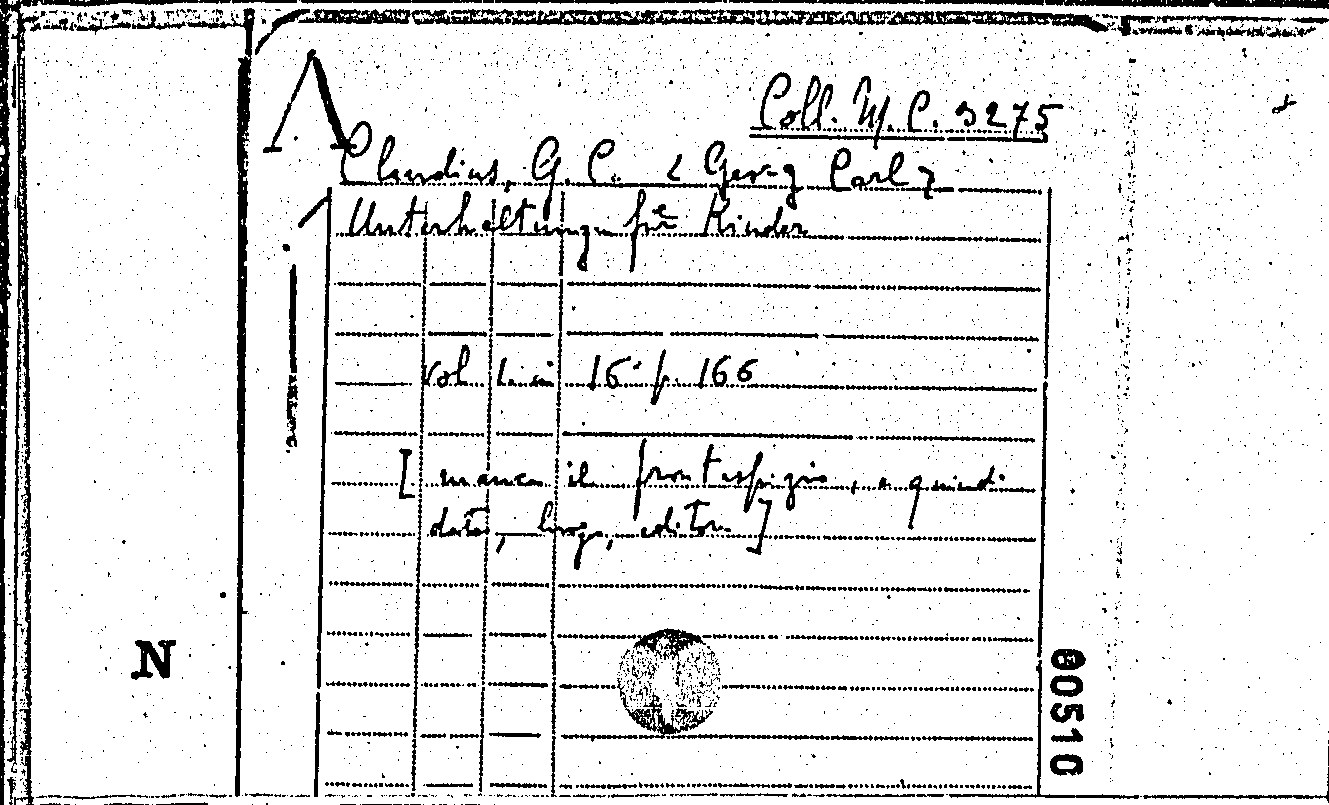 Coll. M. C. 3275
Claudius, G. C. < Georg Carl >
Unterhaltungen für Kinder
vol 1. in 16° p. 166
[ manca il frontespizio, e quindi
data, luogo, editore ]
N
00510